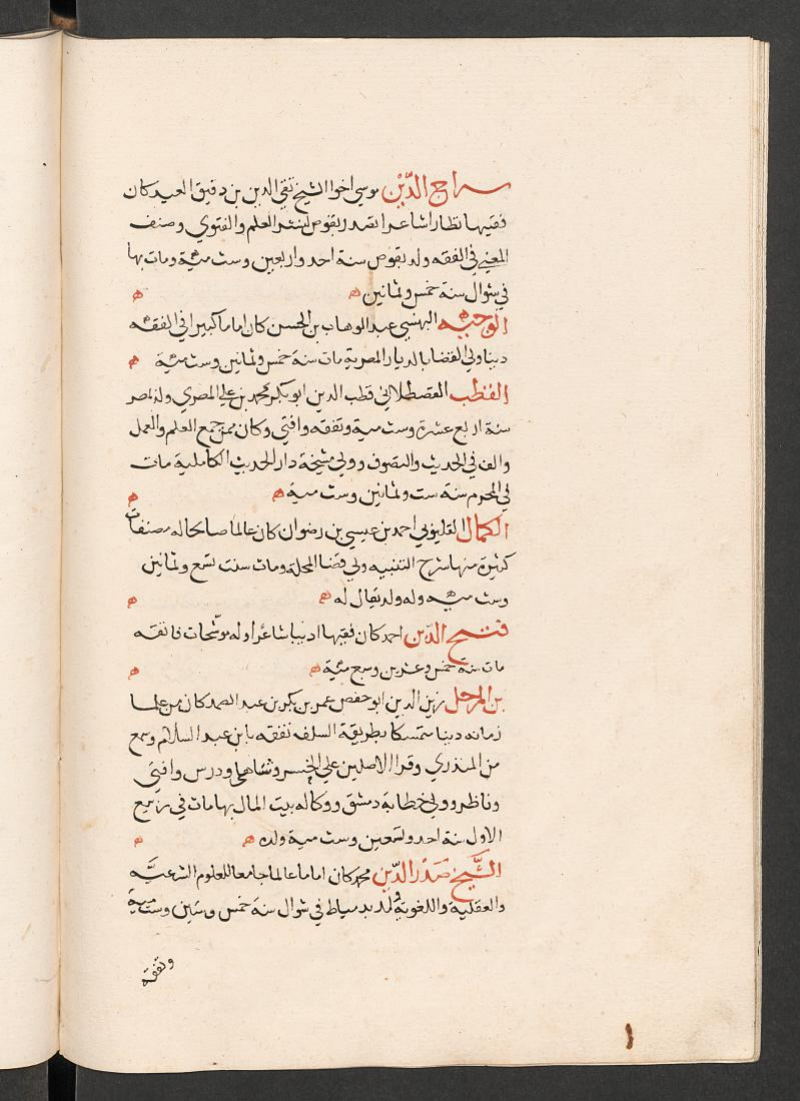 سراج الدين موسي اخوا الشيخ تقي الدين بن دقيق العيد كان
فقيها نظارا شاعرا تصدر بقوص لنشر العلم والفتوي وصنف
المغني في الفقه ولد بقوص سنة احد واربعين وست مية ومات بها
في شوال سنة خمس وثمانين ه ه
الوجيه البهنسي عبد الوهاب بن الحسن كان اماما كبيرا في الفقه
دينا ولي القضا بالديار المصرية مات سنة خمس وثمانين وست مئة ه
القطب القصطلاني قطب الدين ابو بكر محمد بن علي المصري ولد بمصر
سنة اربع عشرة وست مية وتفقه وافتي وكان ممن جمع العلم والعمل
والف في الحديث والتصوف وولي مشيخة دار الحديث الكاملية مات
في المحرم سنة ست وثمانين وست مية ه ه
الكمال القليوبي احمد بن عيسي بن رضوان كان عالما صالحا له مصنفات
كثيرة منها شرح التنبيه ولي قضا المحلة ومات سنت تسع وثمانين
وست مئيه وله ولد يقال له ه ه
فتح الدين احمد كان فقيها اديبا شاعرا وله موشحات فائقه
مات سنة خمس وعشرين وسبع مئية ه ه
بن المرحل زين الدين ابو حفص عمر بن بكر بن عبد الصمد كان من علما
زمانه دينا متمسكا بطريقة السلف تفقه بابن عبد السلام وسمع
من المنذري وقرا الاصلين علي الخسروشاهي ودرس وافتي
وناظر وولي خطابة دمشق ووكالة بيت المال بها مات في ربيع
الاول سنة احد وتسعين وست مية ولد ه ه
الشيخ صدر الدين محمد كان اماما عالما جامعا للعلوم الشرعيه
والعقلية واللغوية ولد بدمياط في شوال سنة خمس وستين وست مية
وتفقه